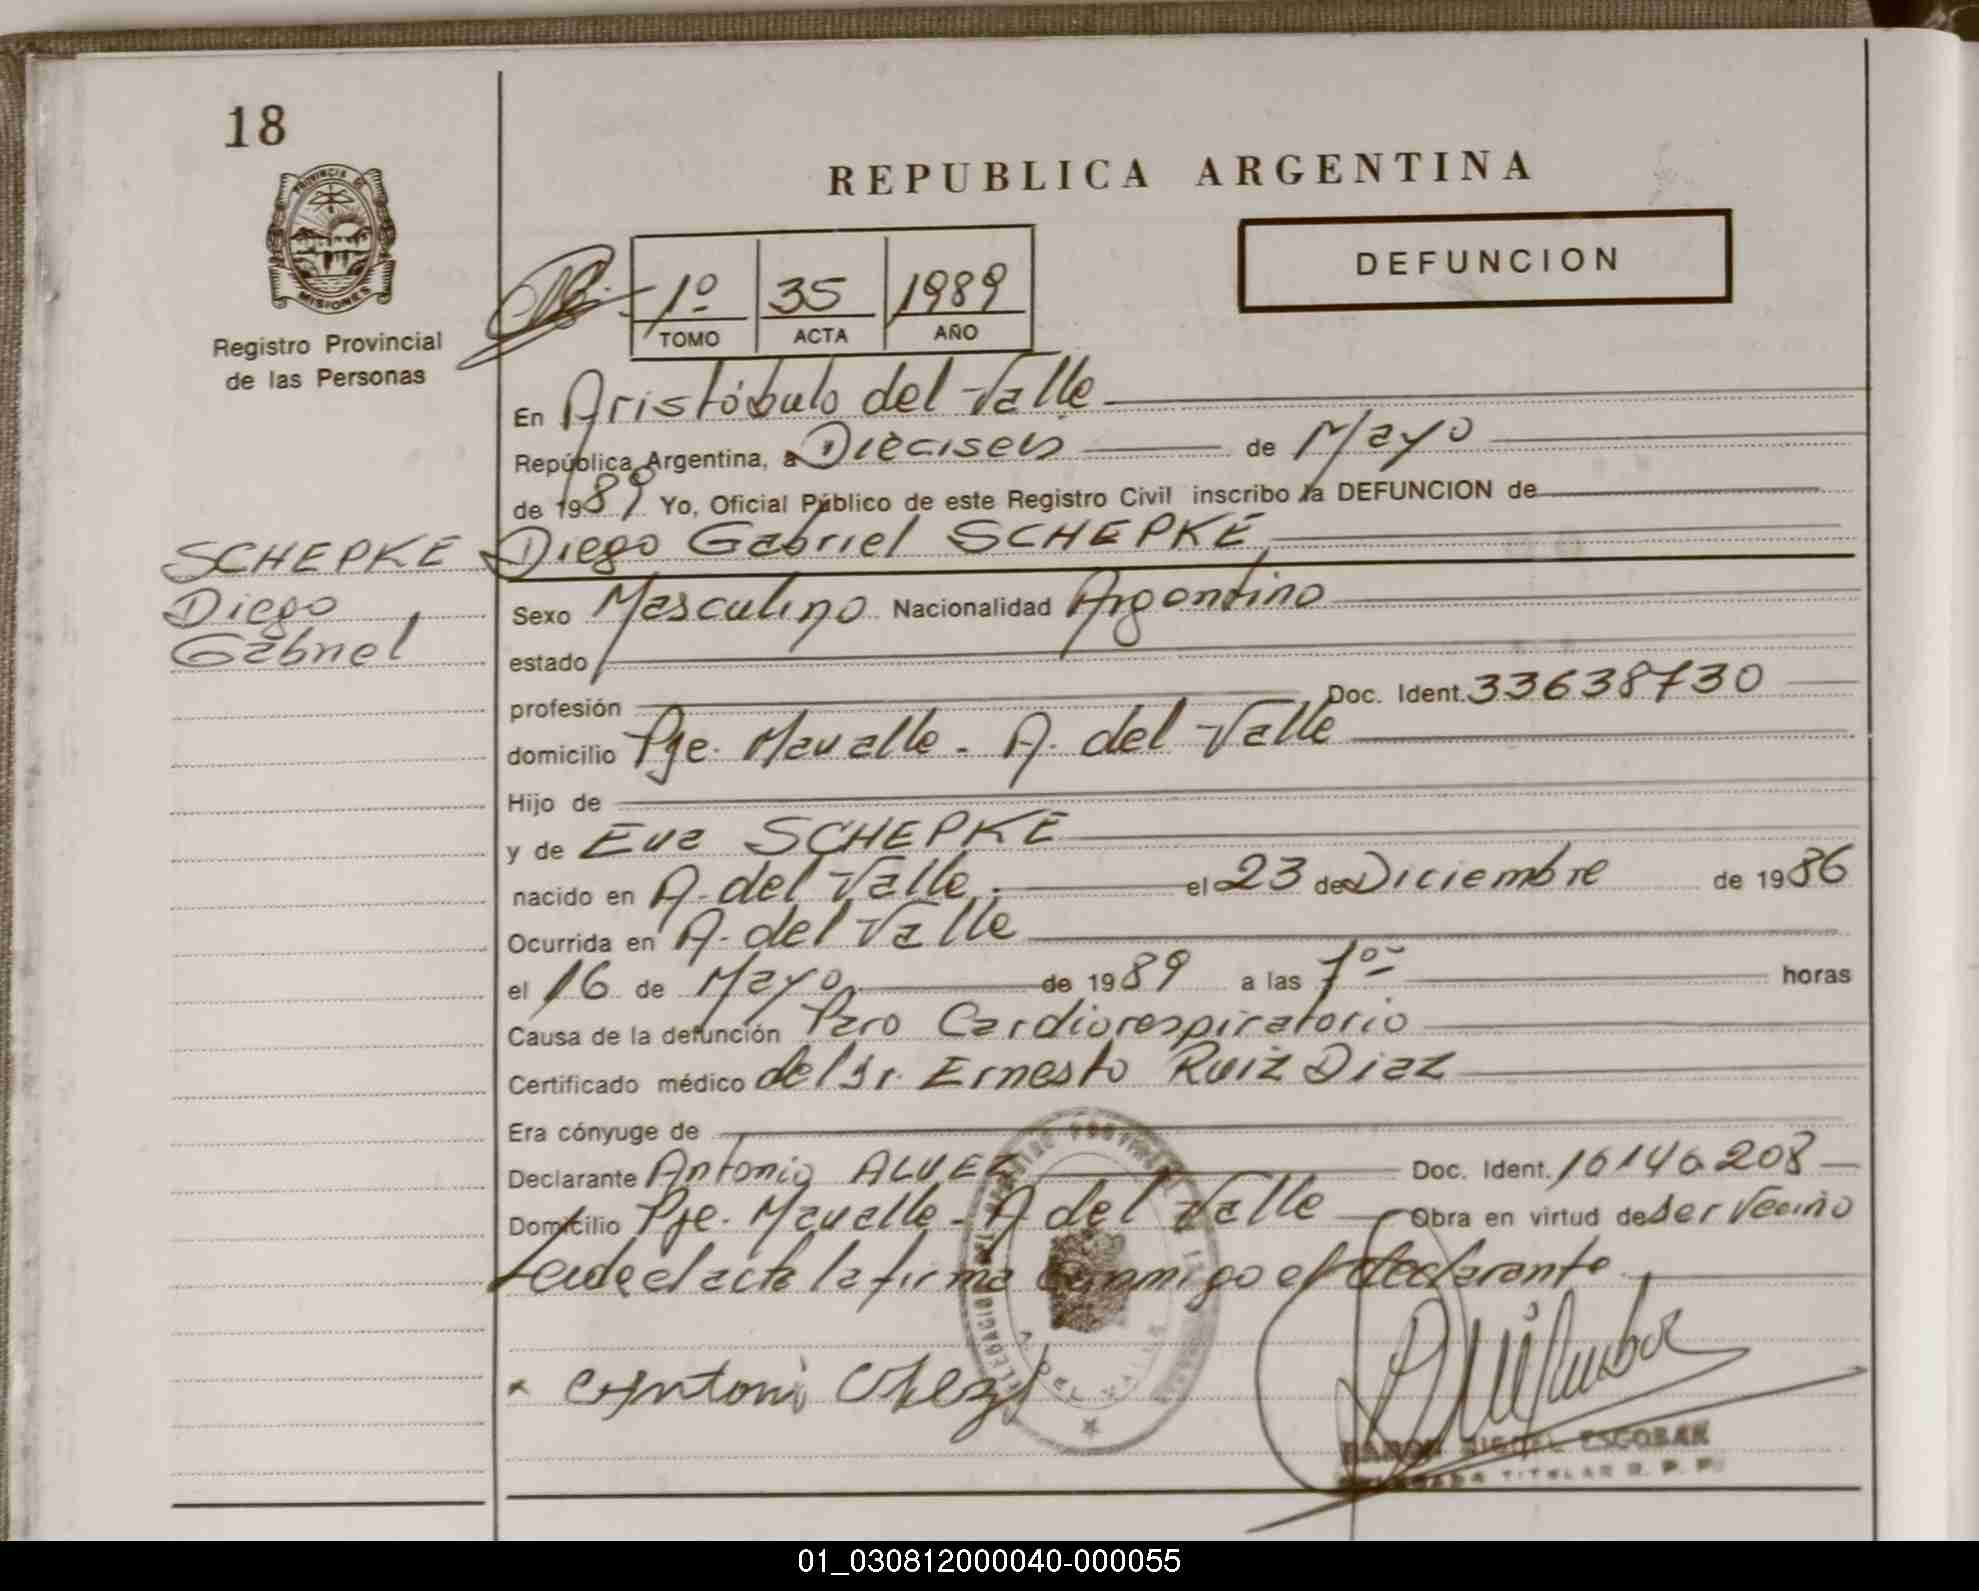 18
PROVINCIA DE
MISIONES
Registro Provincial
de las Personas
REPUBLICA ARGENTINA
DEFUNCION
1º 35 1989
TOMO ACTA AÑO
En Aristóbulo del Valle
República Argentina, a Dieciseis de Mayo
de 1989 Yo, Oficial Público de este Registro Civil inscribo la DEFUNCION de
SCHEPKE
Diego
Gabriel
Diego Gabriel SCHEPKE
Sexo Masculino Nacionalidad Argentino
estado
profesión Doc. Ident. 33638730
domicilio Pje. Mavalle - A. del Valle
Hijo de
y de Eva SCHEPKE
nacido en A. del Valle. el 23 de Diciembre de 1986
Ocurrida en A. del Valle
el 16 de Mayo de 1989 a las horas
Causa de la defunción Paro Cardiorespiratorio
Certificado médico del Dr. Ernesto Ruiz Diaz
Era cónyuge de
Declarante Antonio ALVEZ Doc. Ident.
Domicilio Pje. Mavalle - A del Valle Obra en virtud de ser Vecino
Leida el acta la firma conmigo el declarante
RAMON MIGUEL ESCOBAR
TITULAR R. P. P.
01_030812000040-000055